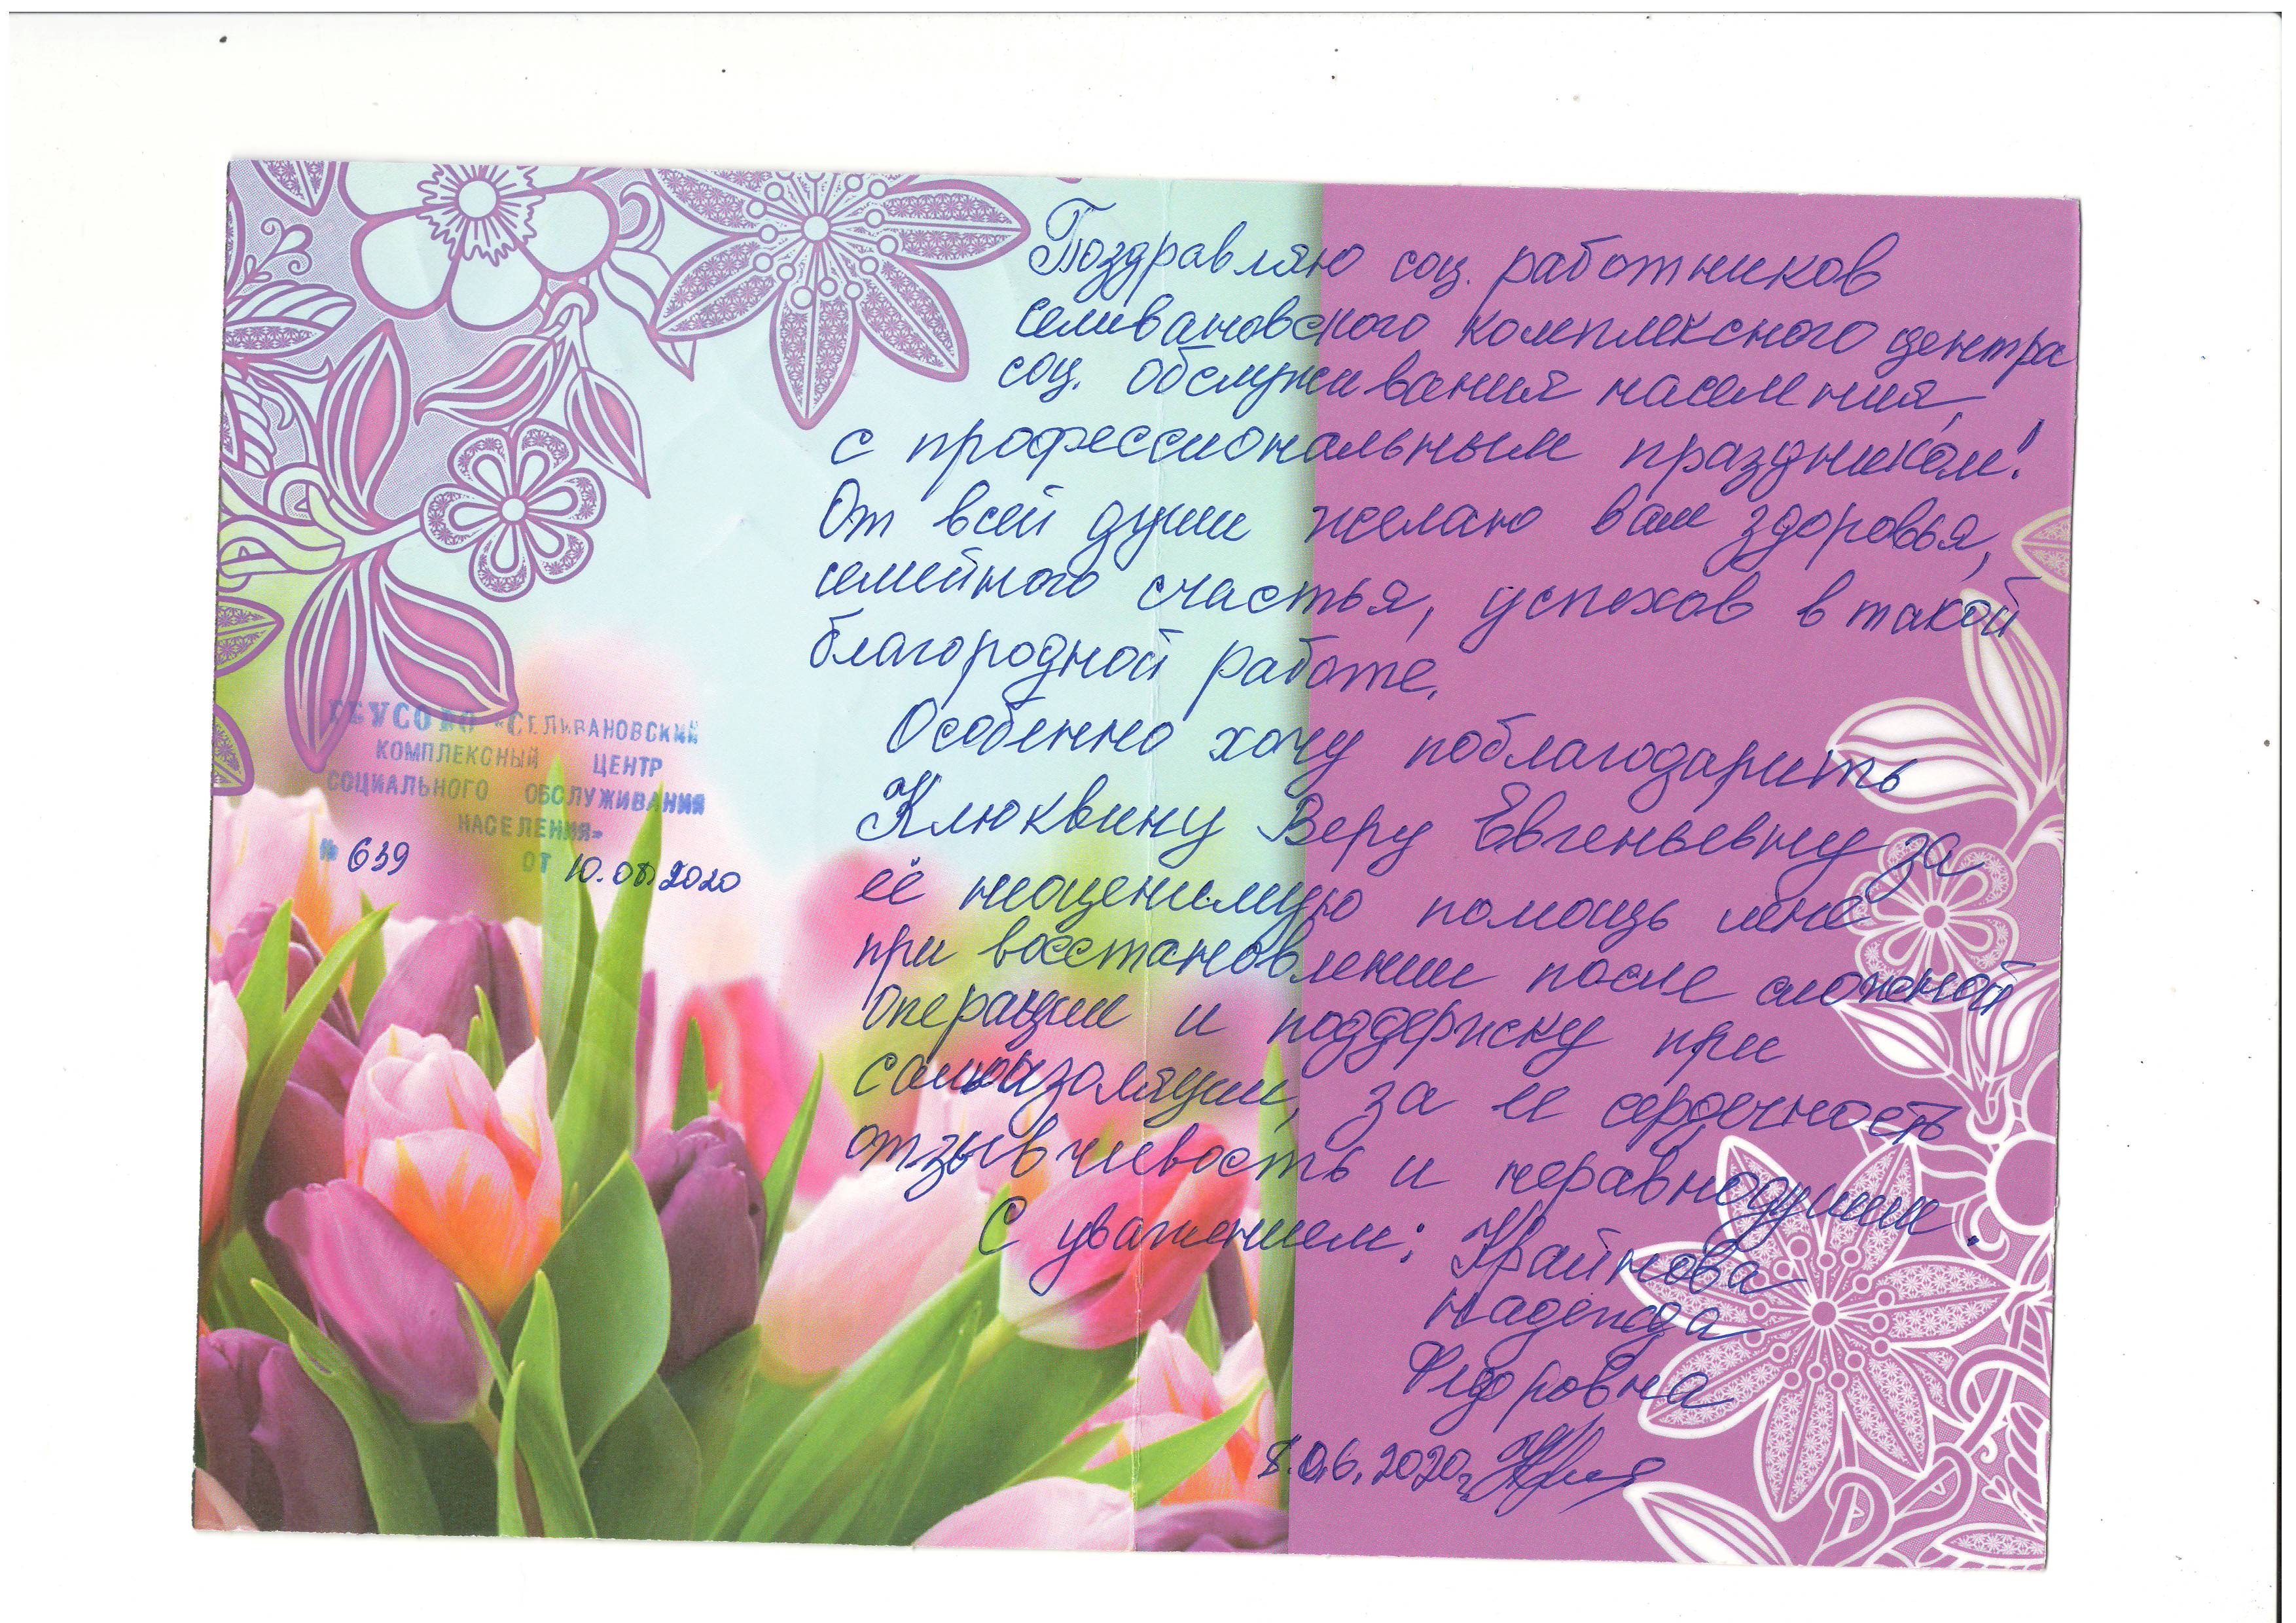 Поздравляю соц. работников
селивановского комплексного центра
соц. обслуживания населения,
с профессиональным праздником!
От всей души желаю вам здоровья,
семейного счастья, успехов в такой
благородной работе.
Особенно хочу поблагодарить
Клюквину Веру Евгеньевну за
её неоценимую помощь мне
при восстановлении после сложной
операции и поддержку при
самоизоляции, за ее сердечность
отзывчивость и неравнодушии.
С уважением: Крайнова
Надежда
Федоровна
8.06.2020г.
ГБУСО ВО «СЕЛИВАНОВСКИЙ
КОМПЛЕКСНЫЙ ЦЕНТР
СОЦИАЛЬНОГО ОБСЛУЖИВАНИЯ
НАСЕЛЕНИЯ»
№ 639 ОТ 2020